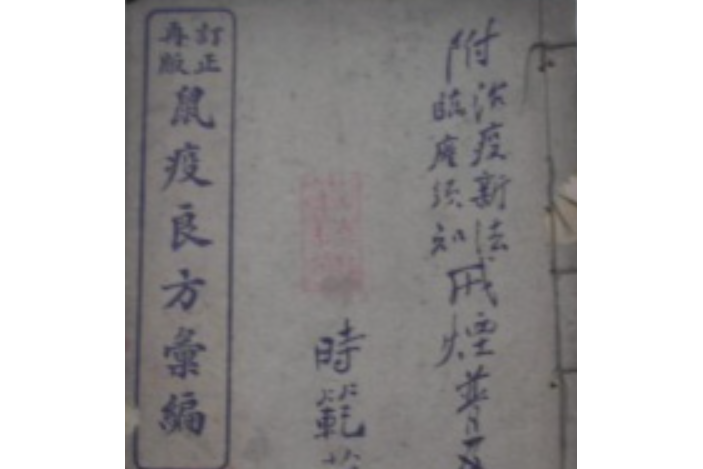 附
治疫新法
臨產須知
戒煙
時範
訂正
再版
鼠疫良方彙編